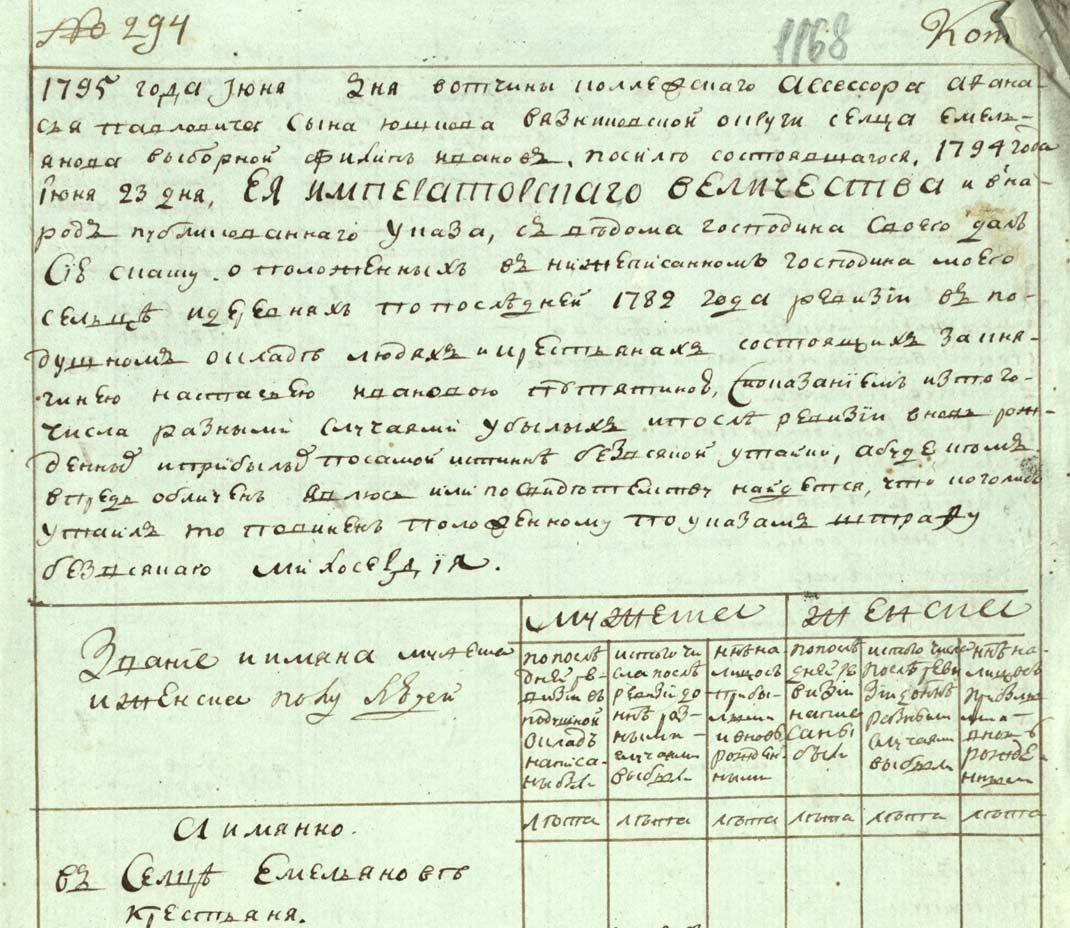 № 294
1168
Коп
1795 года Июня дня вотчины коллежскаго Ассессора афана-
сья павловича сына юшкова вязниковской округи селца емель-
янова выборной филипъ ивановъ, посилѣ состоявшагося, 1794 года
Июня 23 дня, ЕЯ императорскаго величества и вна-
родъ публикованнаго Указа, съ вѣдома господина Своего далъ
Сiю скаску о положенныхъ въ нижеписанномъ господина моего
сельцѣ идеревняхъ попослѣдней 1782 года ревизiи въ по-
душномъ окладѣ людяхъ икрестьянахъ состоящихъ за кня-
гинею настасьею ивановою Споказанiемъ изтого-
числа разными случаями убылыхъ ипослѣ ревизiи вновь рож-
денныхъ иприбылыхъ посамой истиннѣ безвсякой утайки, абуде комъ
впредь обличенъ явлюсь или посвидѣтельству найдется, что коголибо
утаилъ то повиненъ положенному поуказамъ штрафу
безвсякаго милосердiя.
Званiе иимяна мужеска
иженска полу людей
мужеска
женска
попослѣ
дней ре-
визiи въ
подушной
окладъ
написа-
ны были
истого чи
сла послѣ
ревизiи до
ннѣ раз-
ными-
случаями
выбыли
ннѣ на
лицо съ
прибы-
лыми
ивновь
рожден-
ными
попослѣ
дней ре
визiи
написа
саны
были
истого числа
послѣ реви
зiи доннѣ
разными
случаями
выбыли
ннѣ на-
лицо съ
прибылы
ми-
вновь
рожде-
нными
лѣта лѣта лѣта лѣта лѣта лѣта
Аимянно.
въ Селцѣ Емельяновѣ
крестьяня.